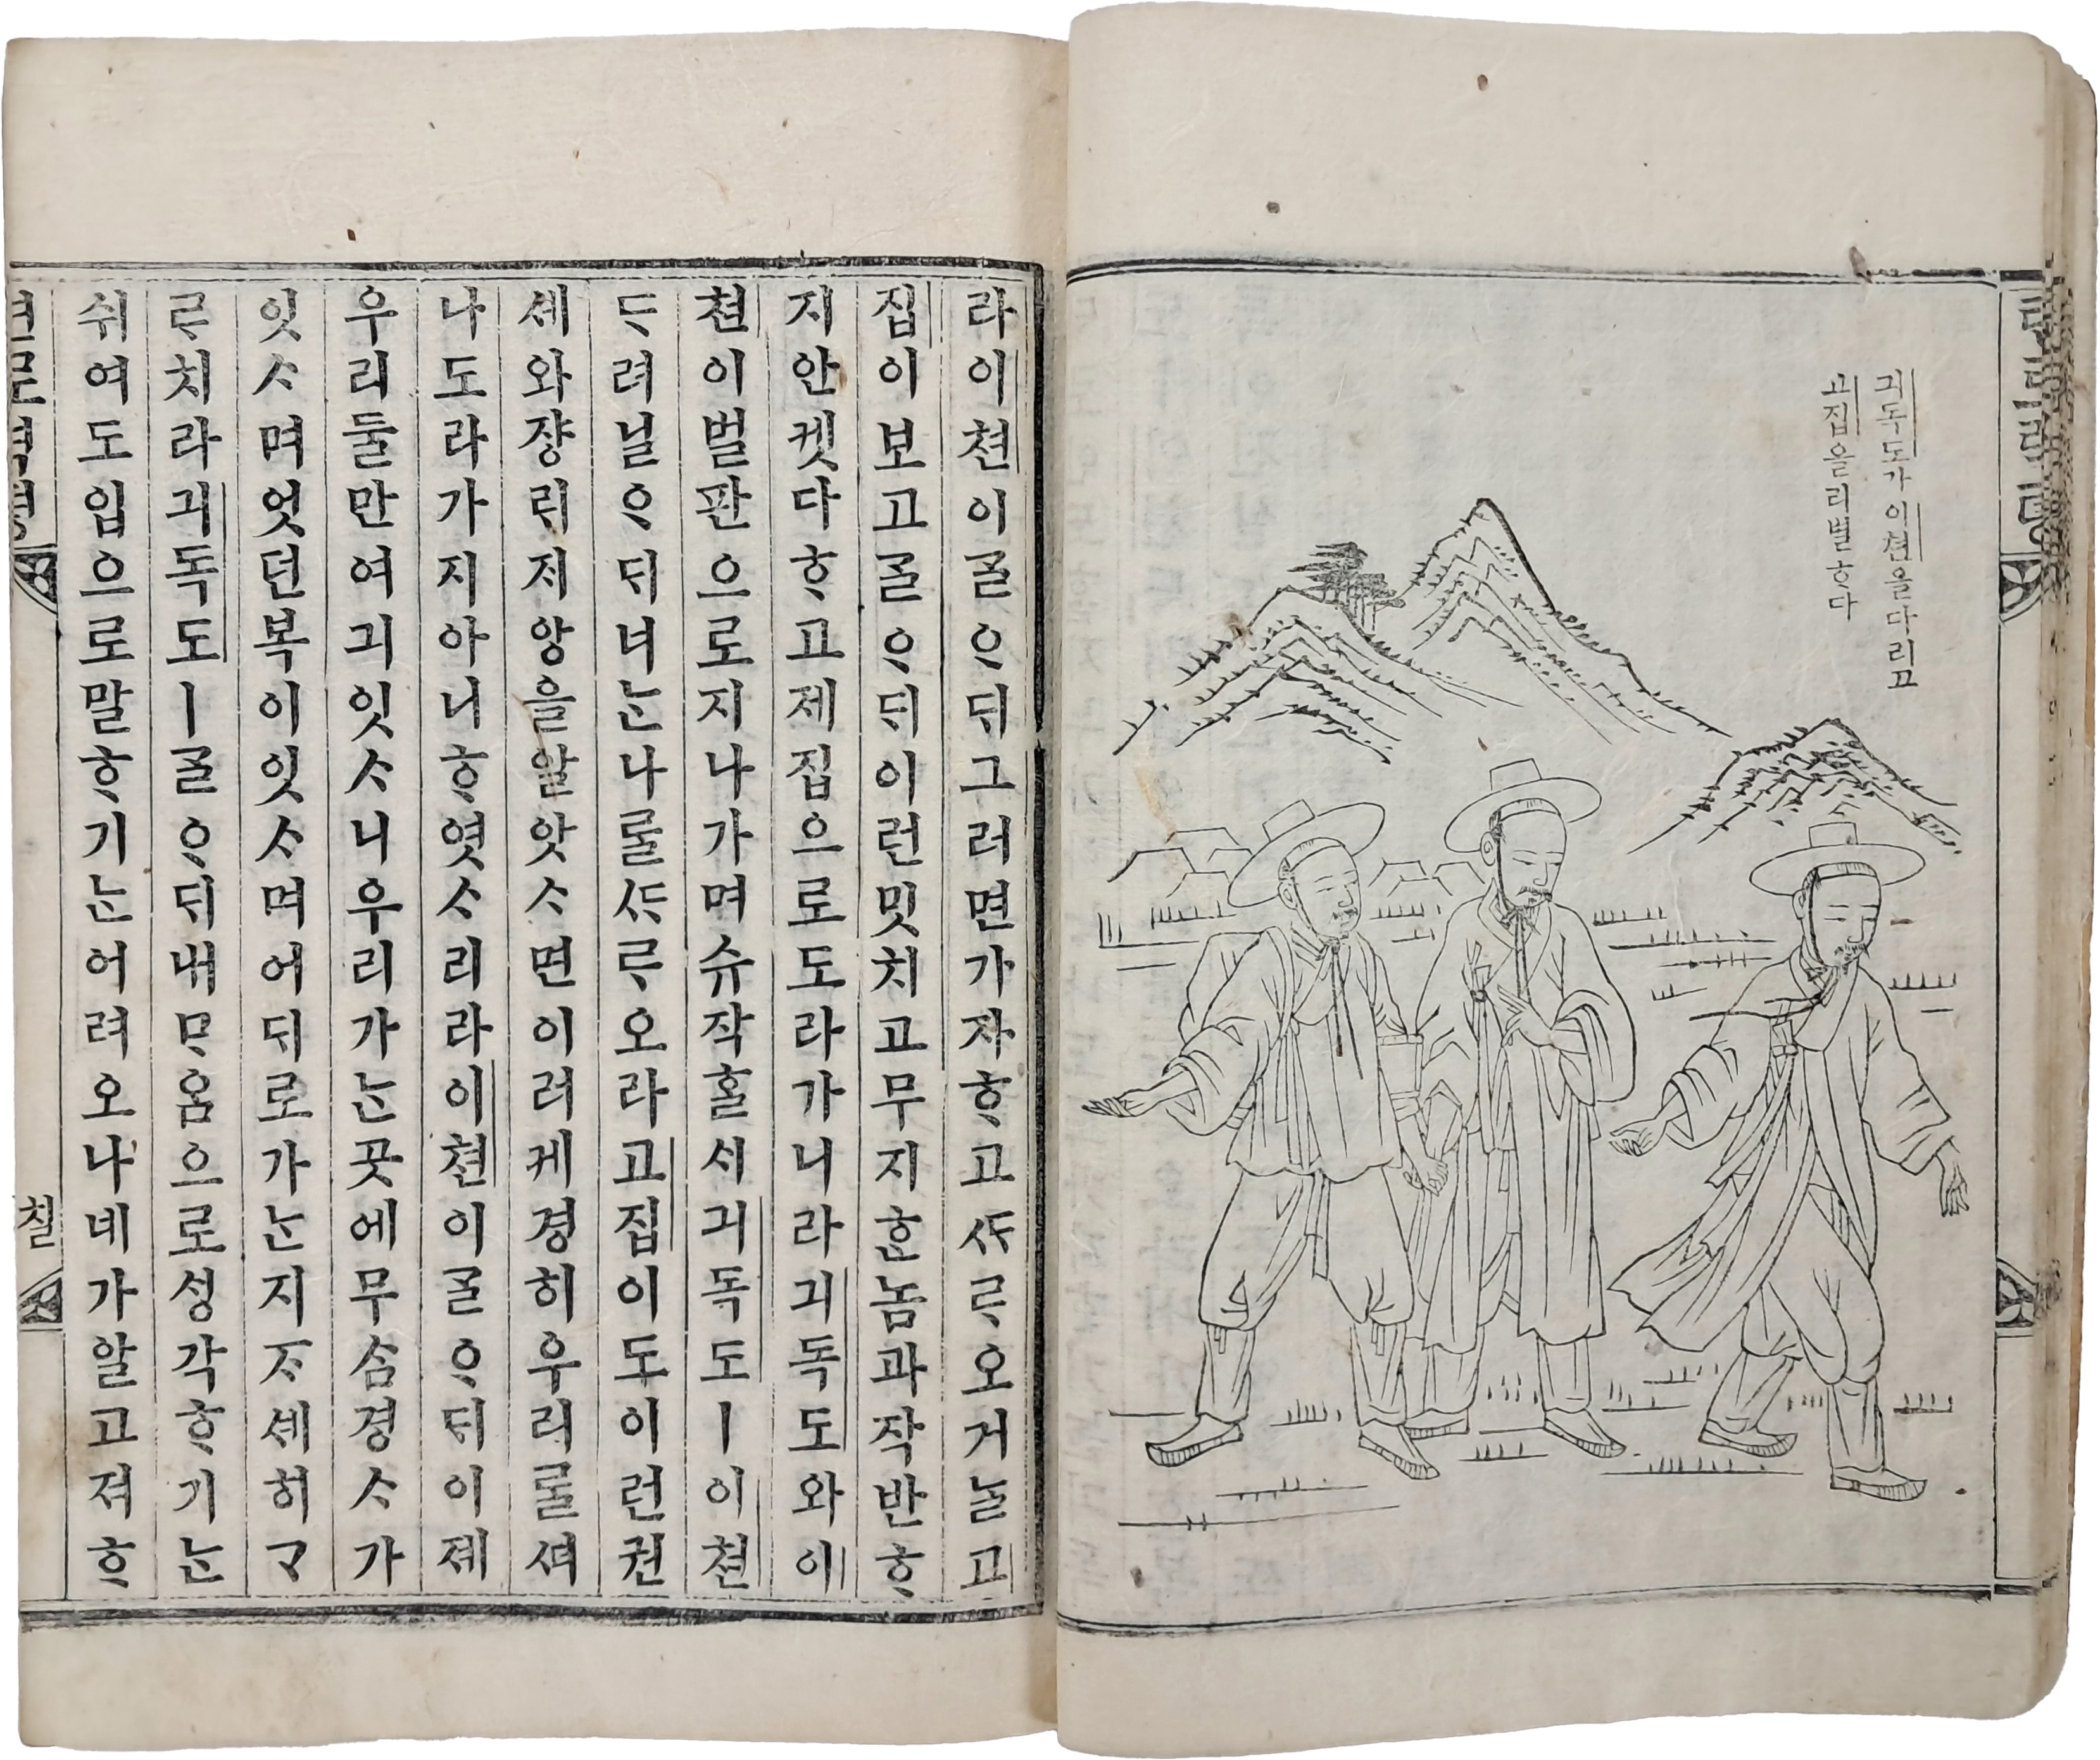 긔독도가이쳔을다리고
고집을리별ᄒᆞ다
라이쳔이ᄀᆞᆯᄋᆞᄃᆡ그러면가쟈ᄒᆞ고ᄯᆞᄅᆞ오거ᄂᆞᆯ고
집이보고ᄀᆞᆯᄋᆞᄃᆡ이런밋치고무지ᄒᆞᆫ놈과작반ᄒᆞ
지안켓다ᄒᆞ고제집으로도라가니라긔독도와이
쳔이벌판으로지나가며슈작ᄒᆞᆯᄉᆡ긔독도ㅣ이쳔
ᄃᆞ려닐ᄋᆞᄃᆡ너ᄂᆞᆫ나ᄅᆞᆯᄯᆞᄅᆞ오라고집이도이런권
셰와쟝ᄅᆡᄌᆡ앙을알앗ᄉᆞ면이러케경히우리ᄅᆞᆯᄯᅥ
나도라가지아니ᄒᆞ엿ᄉᆞ리라이쳔이ᄀᆞᆯᄋᆞᄃᆡ이졔
우리둘만여긔잇ᄉᆞ니우리가ᄂᆞᆫ곳에무ᄉᆞᆷ경ᄉᆞ가
잇ᄉᆞ며엇던복이잇ᄉᆞ며어ᄃᆡ로가ᄂᆞᆫ지ᄌᆞ셰히ᄀᆞ
ᄅᆞ치라긔독도ㅣᄀᆞᆯᄋᆞᄃᆡ내ᄆᆞᄋᆞᆷ으로ᄉᆡᆼ각ᄒᆞ기ᄂᆞᆫ
쉬여도입으로말ᄒᆞ기ᄂᆞᆫ어려오나네가알고져ᄒᆞ
칠